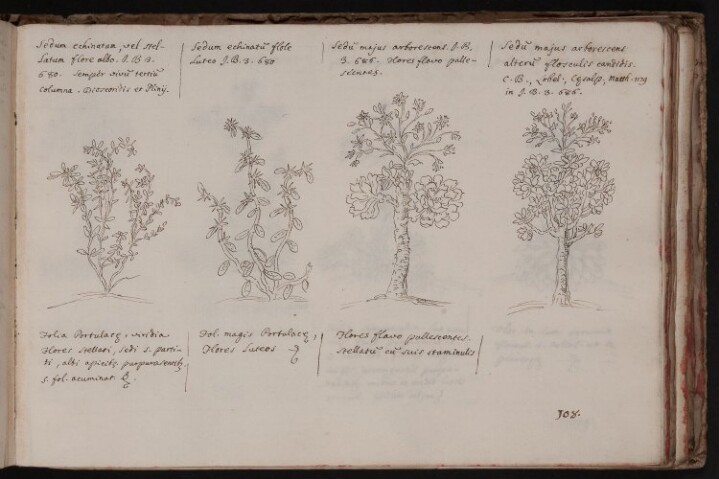 Sedum echinatum, vel stel-
latum flore albo. J. B. 3.
680. Semper vivū tertiū
Columnæ. Dioscoridis et Plinij.
Sedum echinatū flore
luteo J. B. 3. 680
Sedū majus arborescens. J. B.
3. 686. Flores flavo palle-
scentes.
Sedū majus arborescens
alterū flosculis candidis.
C. B., Lobel., Matth.
in J. B. 3. 686.
Folia Portulacę, viridia
Flores stellati, sedi 5. parti-
ti, albi apicib₉ purpurascentib₉
5. fol. acuminat.
Fol. magis Portulacę,
Flores Luteos
Flores flavo pallescentes.
stellatū cū suis staminulis
308.